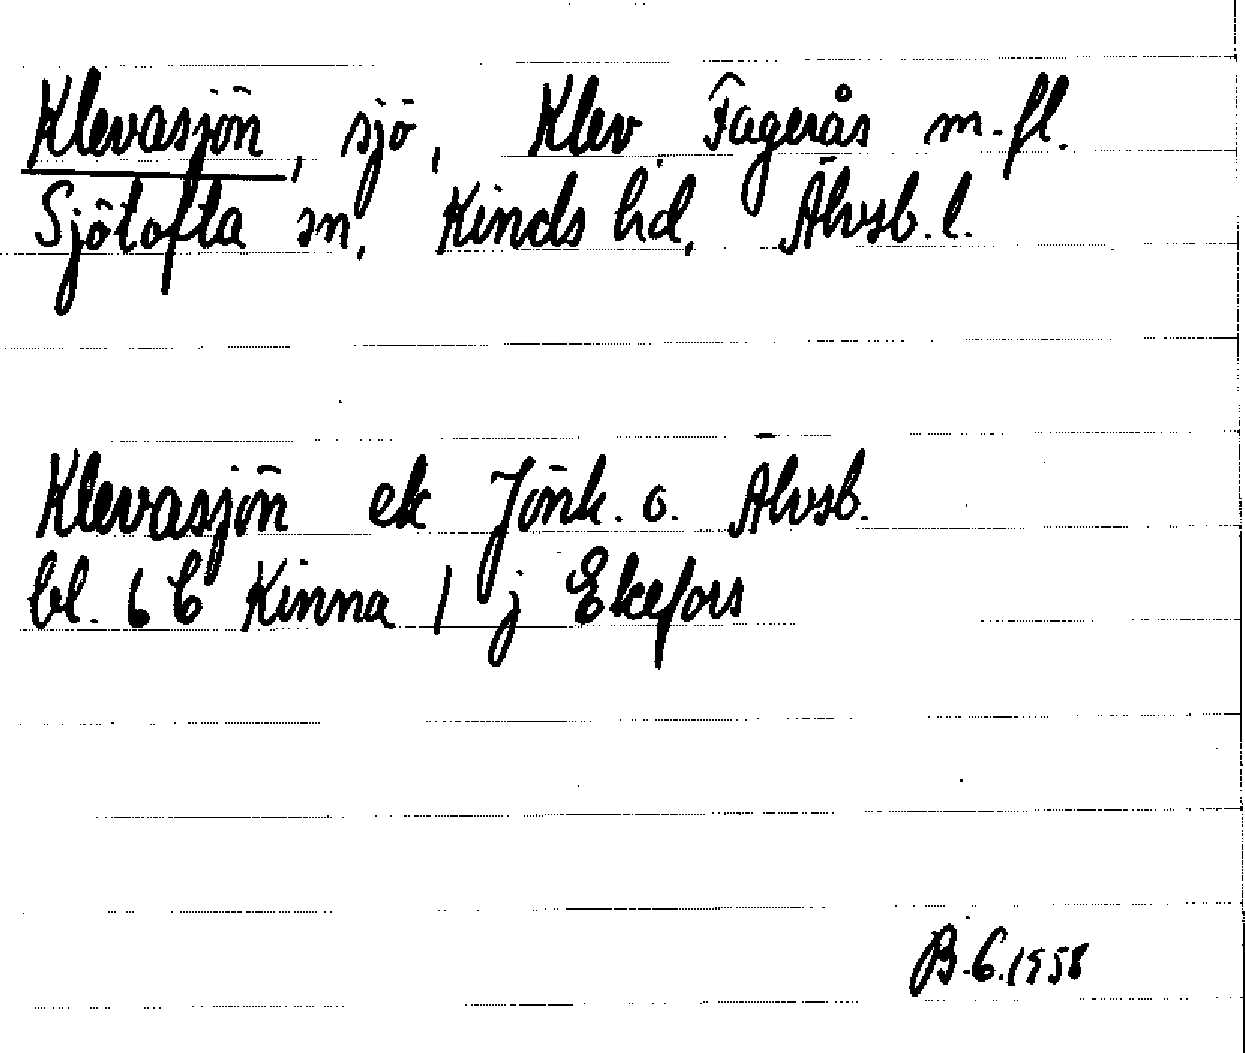 Klevasjön, sjö, Klev Fagerås m.fl.
Sjötofta sn, Kinds hd, Älvsb.l.
Klevasjön ek Jönk. o. Älvsb.
bl. 6 C Kinna 1 j Ekefors
B.G.1958